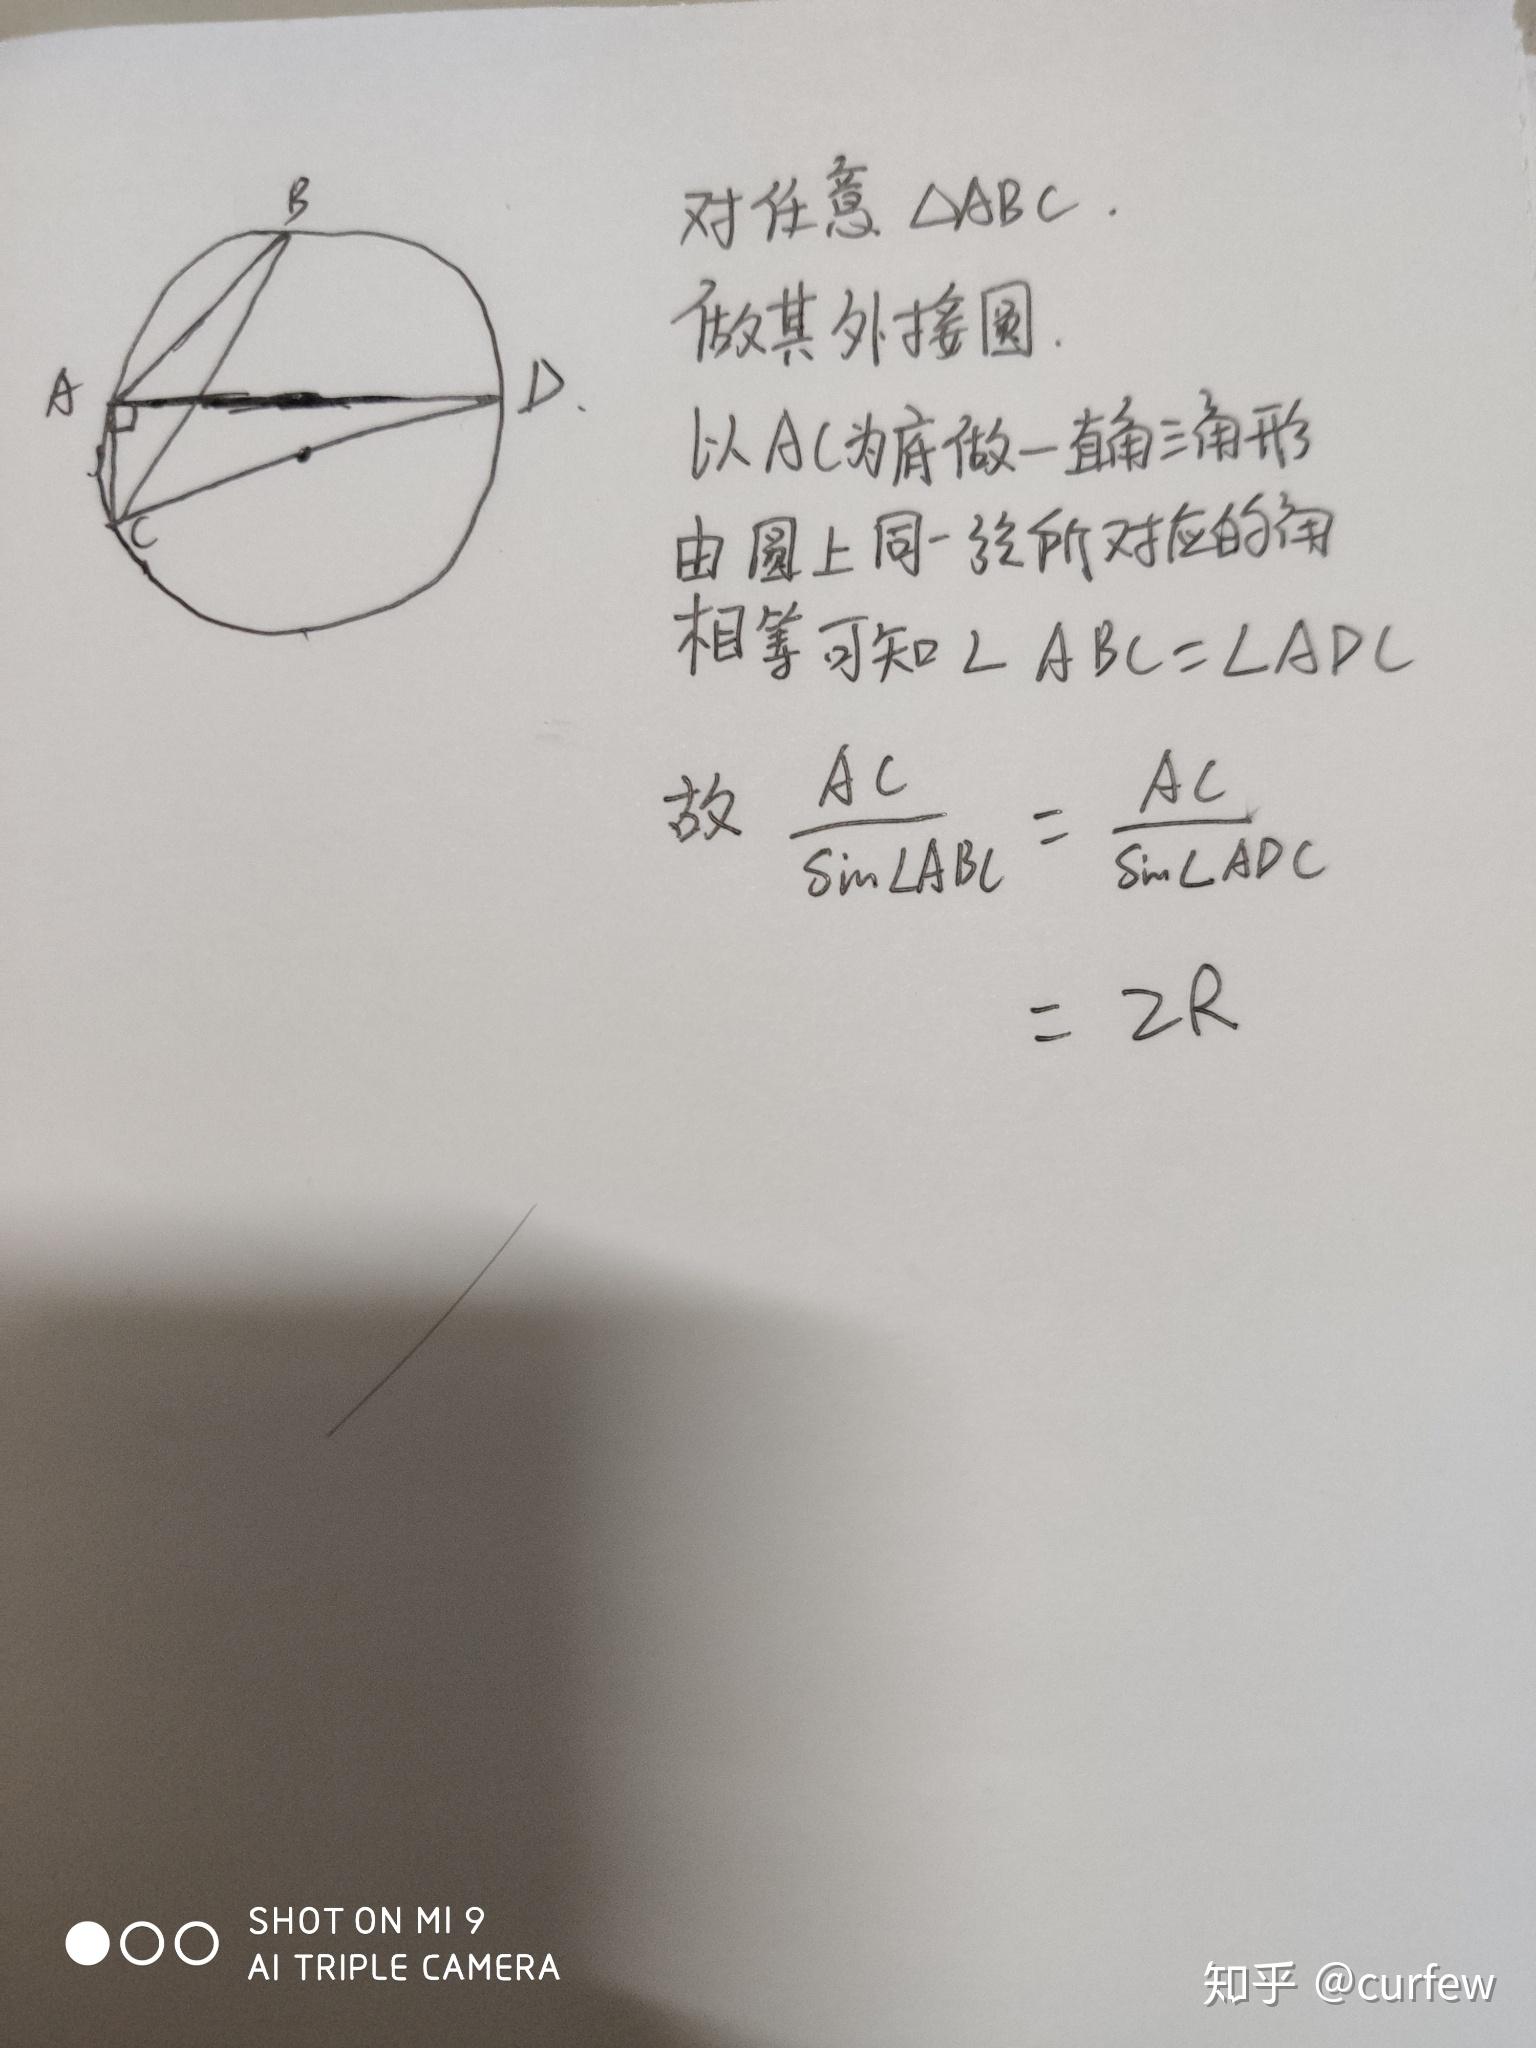 B
A
D.
C
对任意 △ABC.
做其外接圆.
以AC为底做一直角三角形
由圆上同一弦所对应的角
相等可知∠ABC=∠ADC
故 AC/sin∠ABC = AC/sin∠ADC
= 2R
SHOT ON MI 9
AI TRIPLE CAMERA
知乎 @curfew